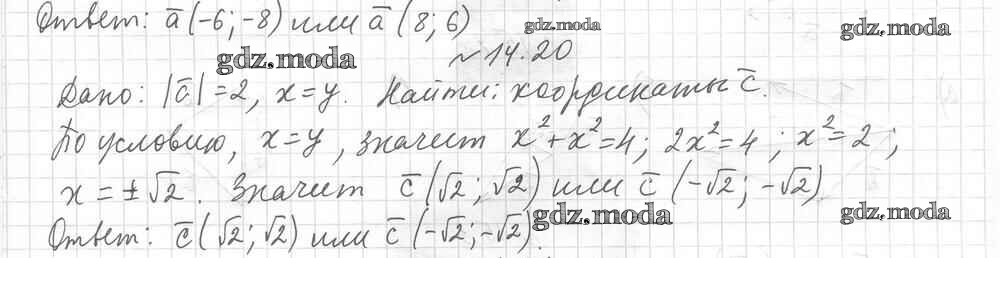 Ответ: a̅ (-6; -8) или a̅ (8; 6)
gdz.moda
gdz.moda
gdz.moda
№ 14.20
Дано: |c̅| = 2, x = y. Найти: координаты c̅.
По условию, x = y, значит x² + x² = 4; 2x² = 4; x² = 2;
x = ± √2. Значит c̅ (√2; √2) или c̅ (-√2; -√2)
gdz.moda
gdz.moda
Ответ: c̅ (√2; √2) или c̅ (-√2; -√2).